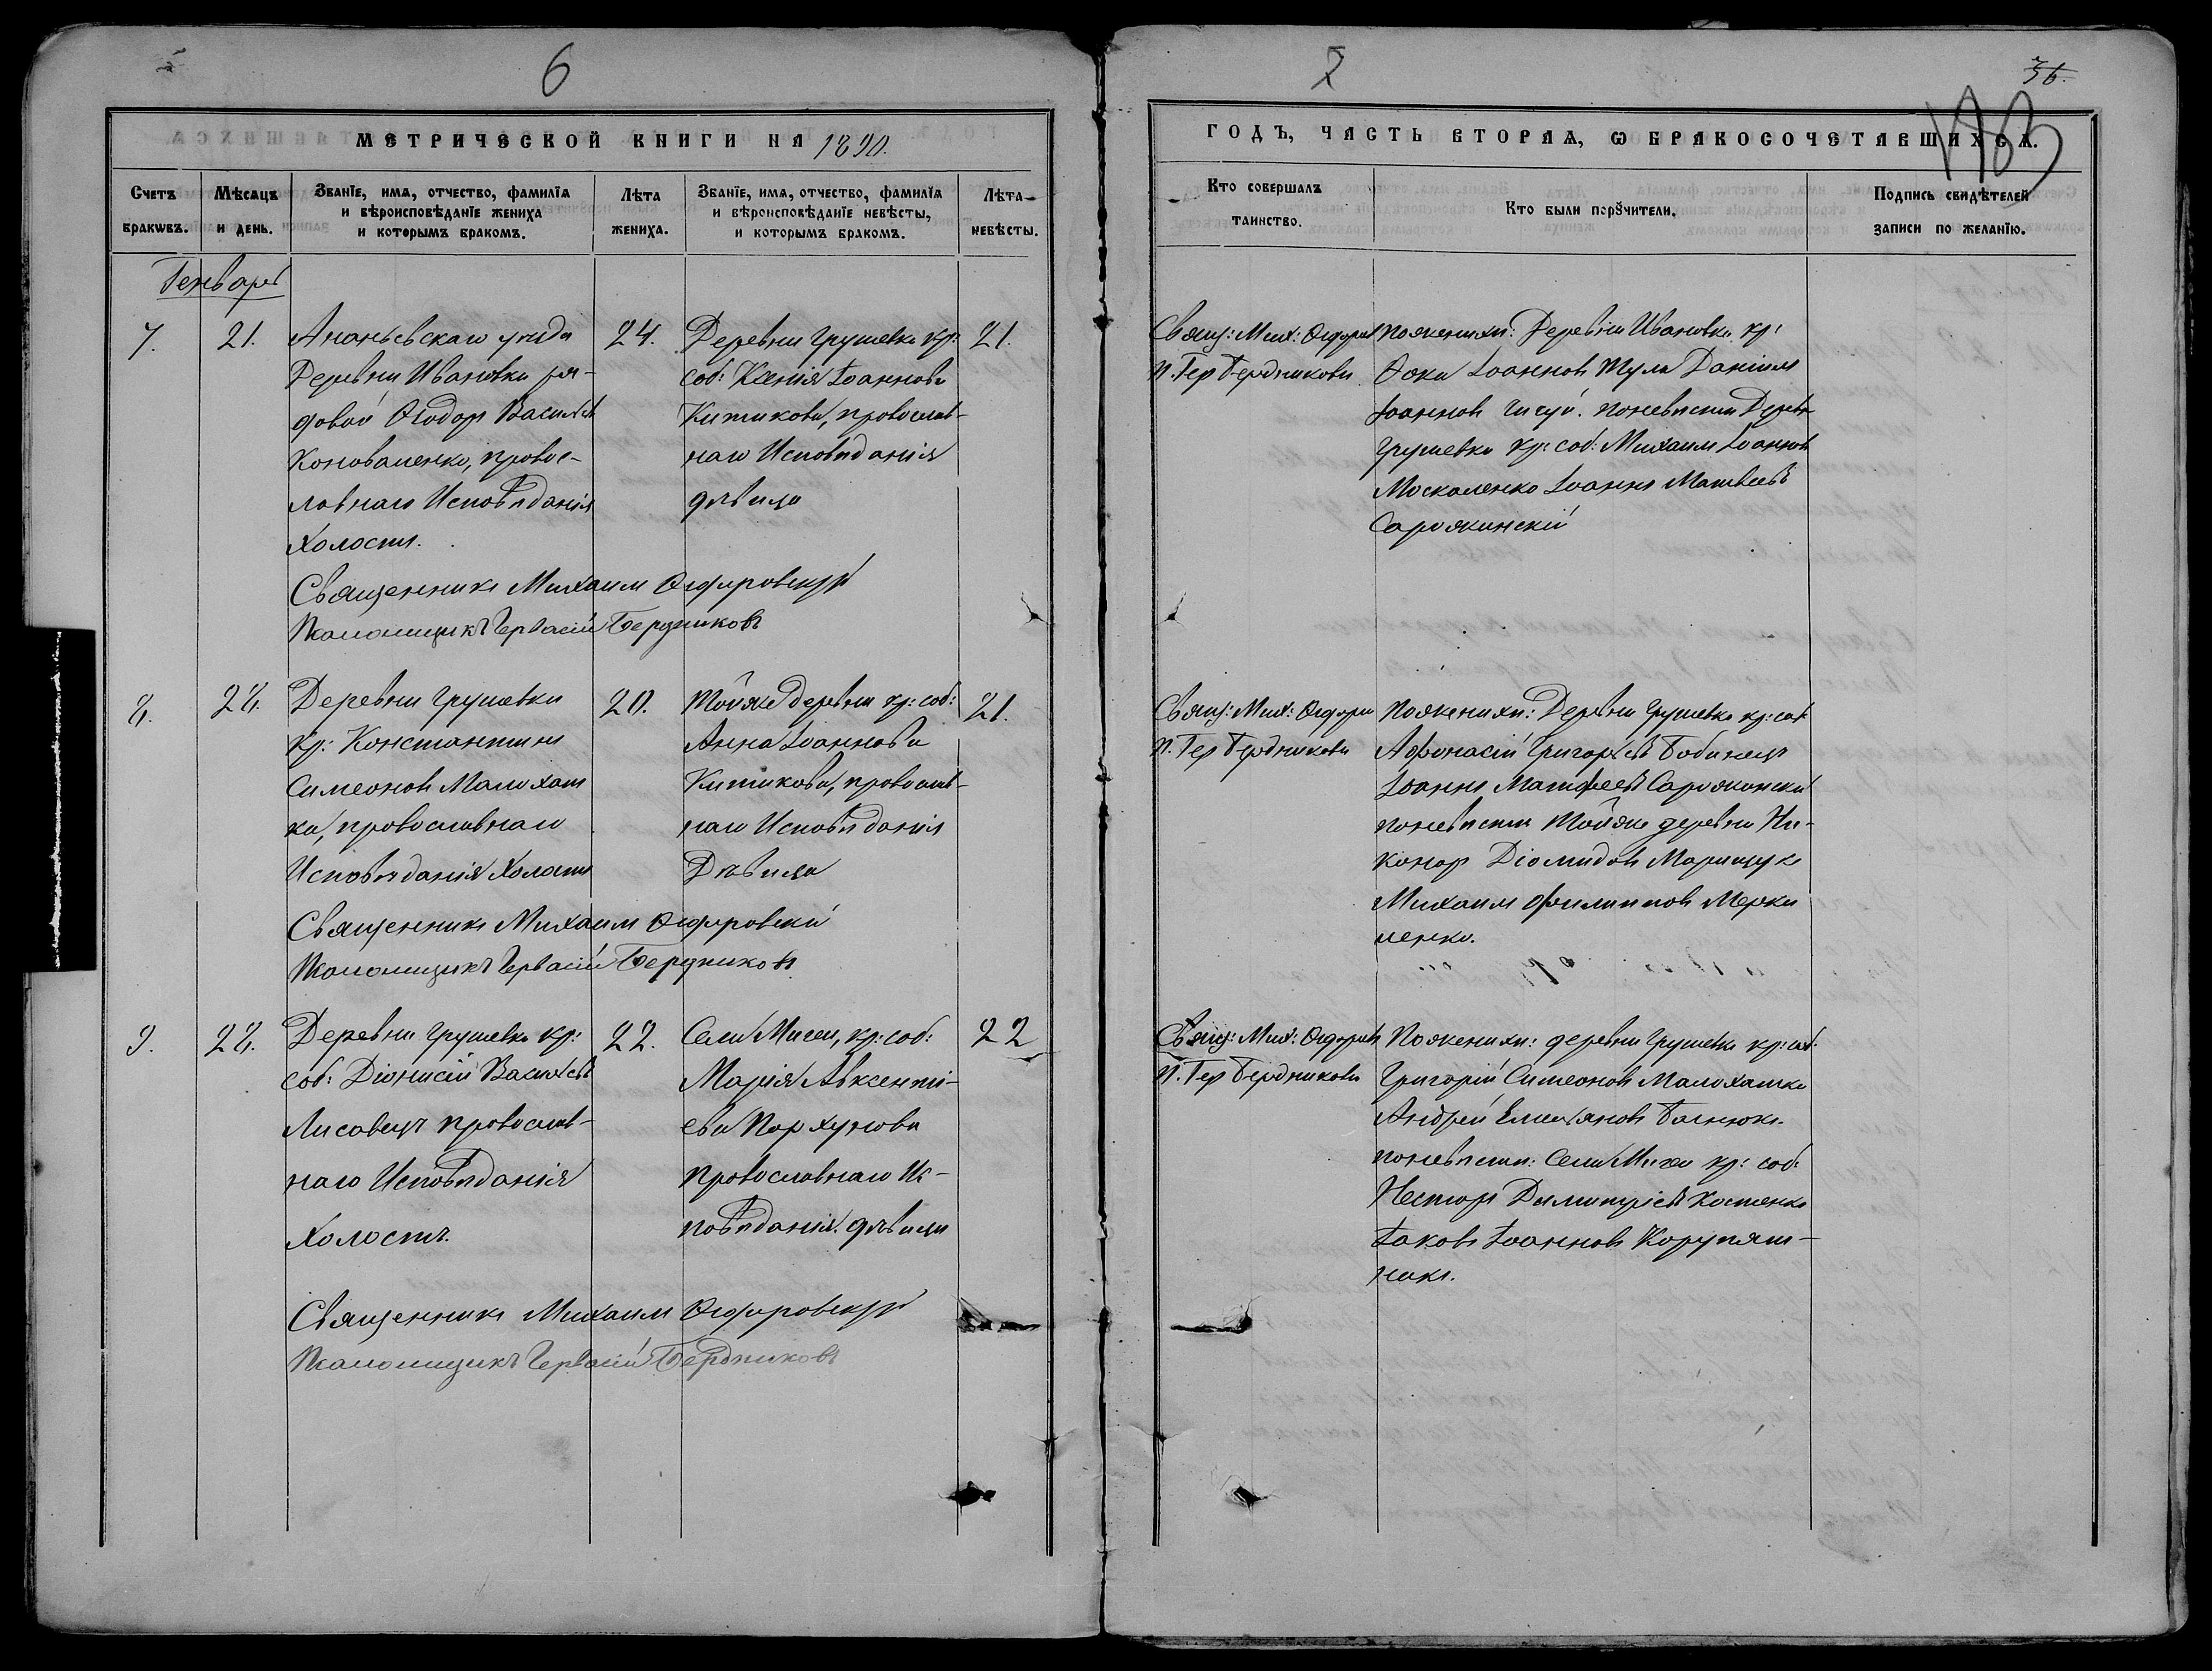 6
МЕТРИЧЕСКОЙ КНИГИ НА 1890.
Счетъ бракѡвъ.
Мѣсяцъ и день.
Званїе, имя, отчество, фамилїя и вѣроисповѣданїе жениха и которымъ бракомъ.
Лѣта жениха.
Званїе, имя, отчество, фамилїя и вѣроисповѣданїе невѣсты, и которымъ бракомъ.
Лѣта невѣсты.
Генварь
7.
21.
Ананьевскаго уѣзда
Деревни Ивановки ря-
довой Ѳеодоръ Васильевъ
Коноваленко, правос-
лавнаго Исповѣданія
Холостъ.
24.
Деревни Грушевки кр:
соб: Ксенія Іоаннова
Китикова, православ-
наго Исповѣданія
дѣвица
21.
Священникъ Михаилъ
Псаломщикъ Гервасій Бердниковъ
8.
28.
Деревни Грушевки
кр: Константинъ
Симеоновъ Малохат
ка, православнаго
Исповѣданія Холостъ
20.
Тойже деревни кр: соб:
Анна Іоаннова
Китикова, православ-
наго Исповѣданія
Дѣвица
21.
Священникъ Михаилъ
Псаломщикъ Гервасій Бердниковъ
9.
28.
Деревни Грушевки кр:
соб: Діонисій Васильевъ
Лисавецъ православ-
наго Исповѣданія
Холостъ.
22.
Села Мигеи, кр: соб:
Марія Авксенті-
ева Пархунова
Православнаго Ис-
повѣданія. дѣвица
22
Священникъ Михаилъ
Псаломщикъ Гервасій Бердниковъ
7
36.
ГОДЪ, ЧАСТЬ ВТОРАЯ, Ѡ БРАКОСОЧЕТАВШИХСЯ.
Кто совершалъ таинство.
Кто были порꙋчители.
Подпись свидѣтелей записи по желанїю.
Свящ: Мих:
П. Гер Бердниковъ
По женихѣ: Деревни Ивановки кр:
Ѳока Іоанновъ Тула Даніилъ
Іоанновъ Чигуй. по невѣстѣ Деревн
Грушевки кр: соб: Михаилъ Іоанновъ
Москаленко Іоаннъ Матвеевъ
Сарожинскій
Свящ: Мих:
П. Гер Бердниковъ
По женихѣ: Деревни Грушевки кр: соб:
Аѳонасій Григорьевъ Бобинецъ
Іоаннъ Матфеевъ
по невѣстѣ Тойже деревни Ни-
каноръ Діомидовъ Марищукъ
Михаилъ Филипповъ Мерку
ленко.
Свящ: Мих:
П. Гер Бердниковъ
По женихѣ: деревни Грушевки кр: соб:
Григорій Симеоновъ Малохатка
Андрей Емельяновъ
по невѣстѣ: Села Мигеи кр: соб:
Несторъ Димитріевъ Костенко
Іаковъ Іоанновъ